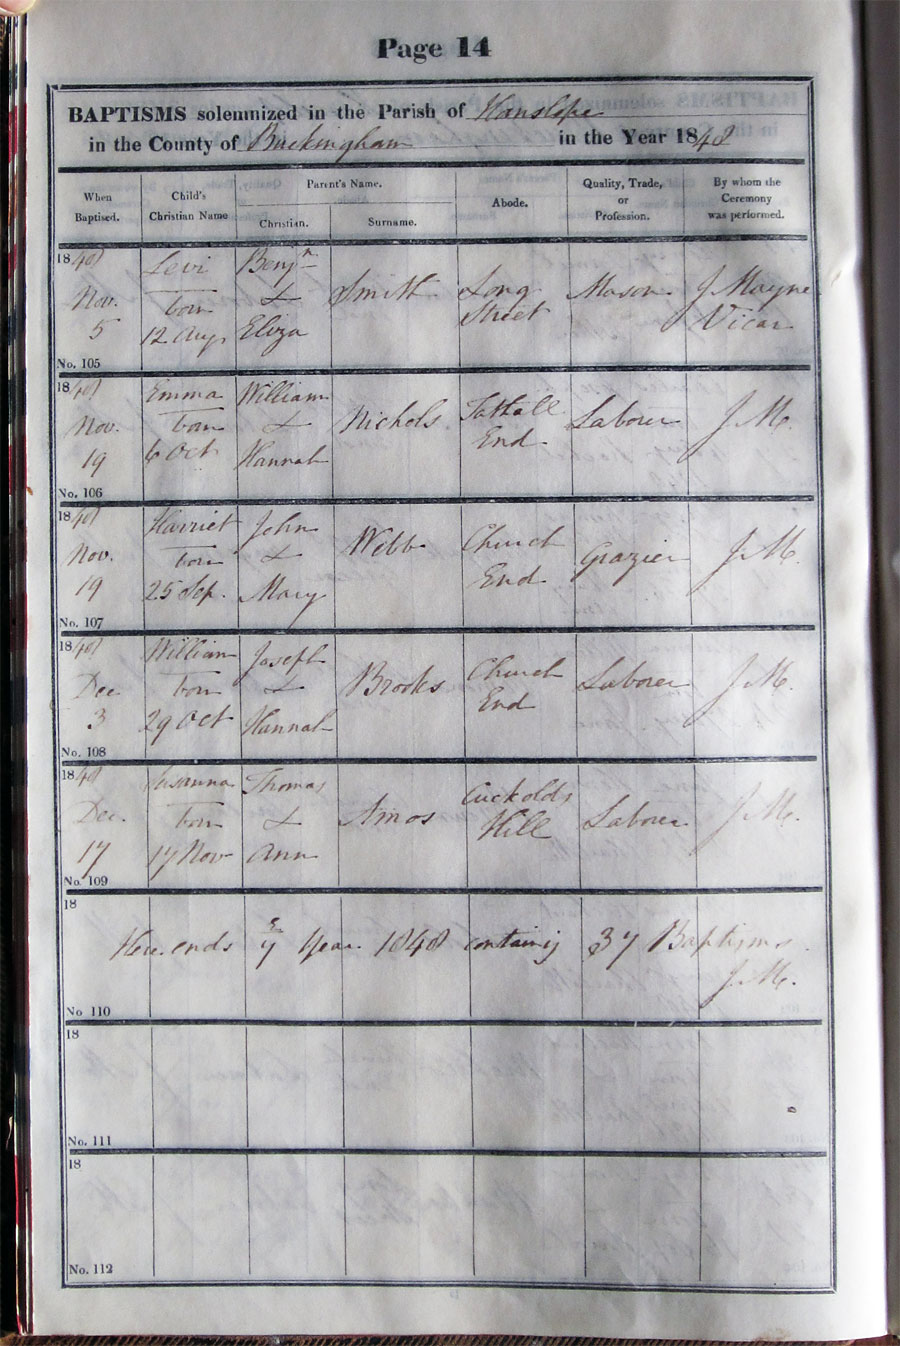 Page 14
BAPTISMS solemnized in the Parish of Hanslope
in the County of Buckingham in the Year 1848
When Baptised.
Child's Christian Name
Parent's Name.
Christian.
Surname.
Abode.
Quality, Trade, or Profession.
By whom the Ceremony was performed.
1848 Levi Benjn
Nov. born & Smith Long Street Mason J Mayne Vicar
5 12 Aug. Eliza
No. 105
1848 Emma William
Nov. born & Nichols Tathall End Labourer J M.
19 6 Oct Hannah
No. 106
1848 Harriet John
Nov. born & Webb Church End Grazier J M.
19 25 Sep. Mary
No. 107
1848 William Joseph
Dec born & Brooks Church End Laborer J M.
3 29 Oct Hannah
No. 108
1848 Susanna Thomas
Dec. born & Amos Cuckolds Hill Laborer J M.
17 17 Nov Ann
No. 109
18
Here ends ye Year 1848 containg 37 Baptisms.
J M.
No. 110
18
No. 111
18
No. 112